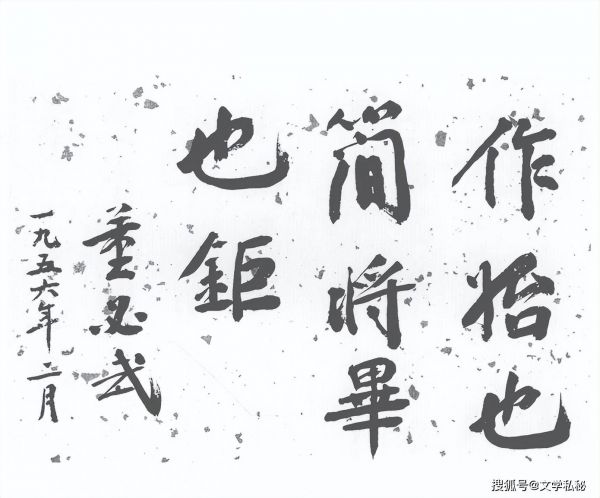 作始也
简將畢
也鉅
董必武
一九五六年二月
搜狐号@文学私秘